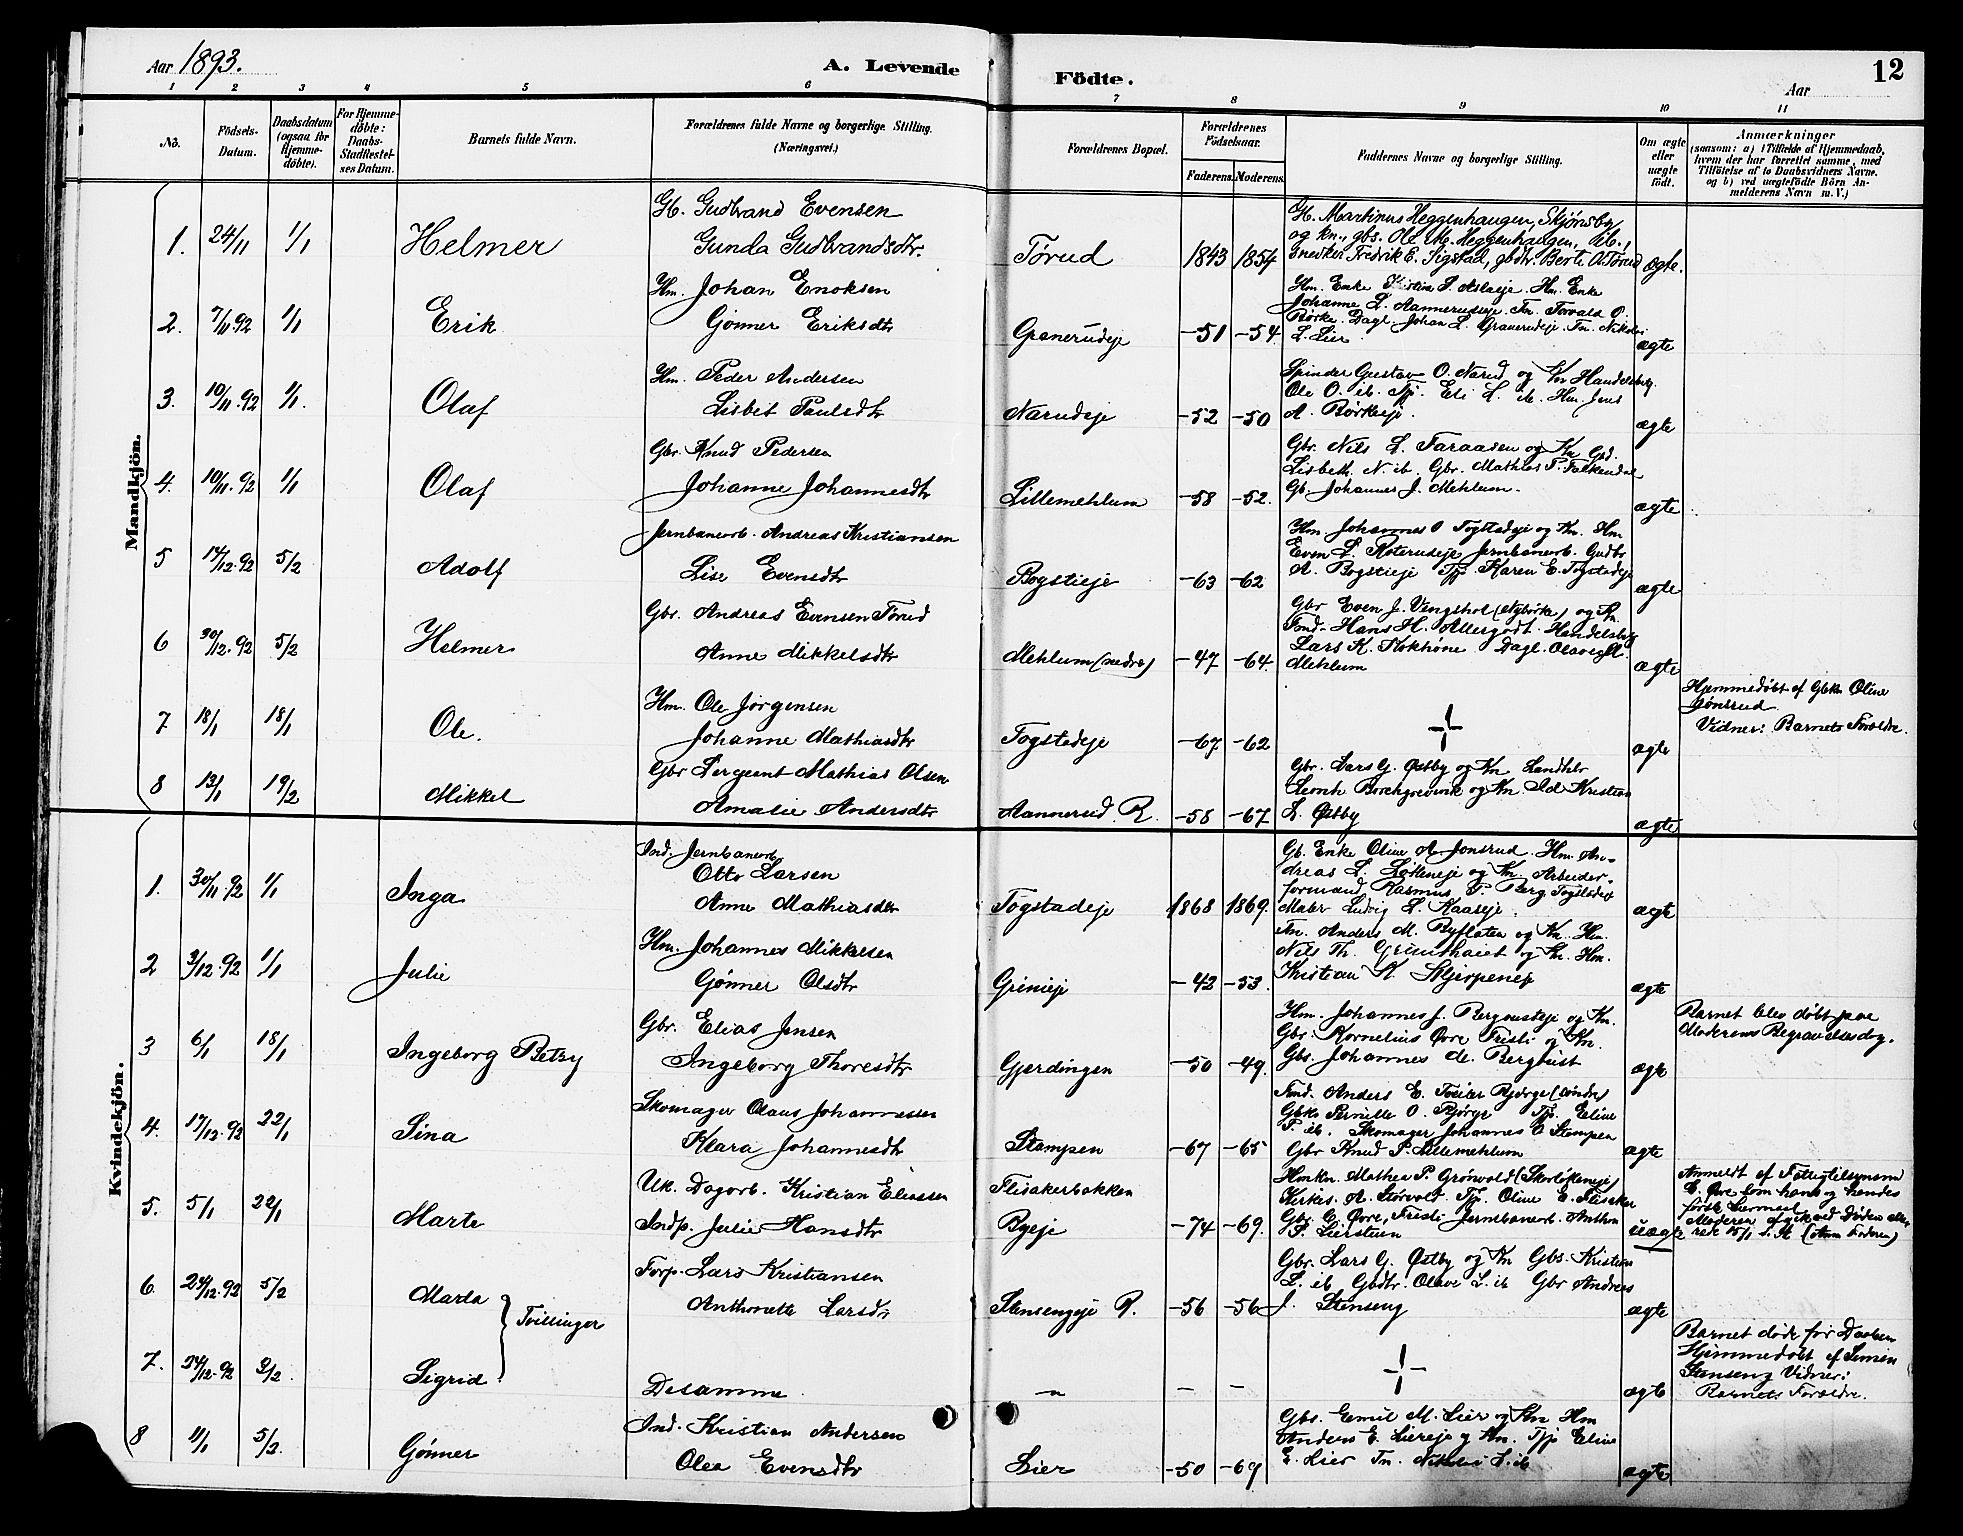 Aar 1893.
A. Levende
Födte.
Aar
12
1 2 3 4 5 6 7 8 9 10 11
No.
Födsels-Datum.
Daabsdatum (ogsaa for Hjemmedøbte).
For Hjemmedøbte: Daabs-Stadfæstelses Datum.
Barnets fulde Navn.
Forældrenes fulde Navne og borgerlige Stilling. (Næringsvei.)
Forældrenes Bopæl.
Forældrenes Födselsaar.
Faderens. Moderens.
Faddernes Navne og borgerlige Stilling.
Om ægte eller uægte födt.
Anmærkninger
(saasom: a) i Tilfælde af Hjemmedaab, hvem der har forrettet samme, med Tilföielse af to Daabsvidners Navne. og b) ved uægtefödte Börn Anmelderens Navn m. V.)
Mandkjön.
1. 24/11 1/1 Helmer
G. Gudbrand Evensen
Gunda Gudbrandsdtr.
Tørud 1843 1854
G. Martinus Heggenhaugen, Skjønsby
og kn., gbs. Ole Mg. Heggenhaugen, ib.,
snedker Fredrik E. Sigstad, gbdtr. Berte O. Tørud
ægte.
2. 7/11.92 1/1 Erik
Hm. Johan Enoksen
Gønner Eriksdtr
Granerudeje -51 -54.
Hm. Enke
Johanne L. Aannerudeje. Tn. Torvald O.
Børke. Dagl. Johan L. Granerudeje. Tn. Nikolai
L. Lier.
ægte
3. 10/11.92 1/1. Olaf
Hm. Peder Andersen
Lisbet Paulsdtr
Narudeje -52 -50
Spinder Gustav O. Narud og Kn Handelsbg.
Ole O. ib. Tpj. Eli L. ib. Hm. Jens
A. Børkeeje.
ægte
4. 10/11.92 1/1 Olaf
Gbr. Knud Pedersen
Johanne Johannesdtr
Lillemehlum -58 -52.
Gbr. Nils L. Faraasen og Kn
Lisbeth N. ib. Gbr. Mathias P. Falkendal
Gb. Johannes J. Mehlum.
ægte
5 14/12.92 5/2 Adolf
Jernbanearb. Andreas Kristiansen
Lise Evensdtr
Bogstieje -63 -62
Hm. Johannes O Togstadeje og Kn. Hm
Even L. Roterudeje Jernbanearb. Gudbr
A. Bogstieje Tpj. Karen E. Togstadeje
ægte
6 30/12.92 5/2 Helmer
Gbs. Andreas Evensen Tørud
Anne Mikkelsdtr
Mehlum (nedre) -47 -64.
Gbr Even J. Vingshol (Nybørke) og Kn.
Hans H. Allergodt. Handelsbg
Lars K. Dagl.
Mehlum
ægte
7 18/1 18/1 Ole.
Hm. Ole Jørgensen
Johanne Mathiasdtr
Togstadeje -67 -62
ægte
Hjemmedøbt af Gbkn Oline
Jønsrud
Vidner: Barnets Forældre.
8 13/1 19/2 Mikkel
Gbr Sergeant Mathias Olsen
Amalie Andersdtr
Aannerud. R. -58 -67.
Gbr. Lars G. Østby og Kn Landhdlr
Leonh Borchgrevink og Kn. Kristian
L. Østby
ægte
Kvindekjön.
1. 30/11.92 1/1 Inga
Ind. Jernbanearb
Otto Larsen
Anne Mathiasdtr
Togstadeje 1868 1869.
Gb. Enke Oline A Jonsrud. Hm. An-
dreas L. Løkkeneje og Kn. Arbeider-
formand Rasmus P. Berg Togstadeje
Maler Ludvig L. Kaaseje.
ægte
2 3/12.92 1/1 Julie
Hm. Johannes Mikkelsen
Gønner Olsdtr
Grinieje -42 -53.
Tn. Anders M. Byflaten og Kn. Hm.
Nils Th. Grinithaiet og Kn. Hm.
Kristian K.
ægte
3 6/1 18/1 Ingeborg Betsy
Gbr. Elias Jensen
Ingeborg Thoresdtr
Gjerdingen -50 -49.
Hm. Johannes J. Bergousteje og Kn.
Gbr. Kornelius Øvre Fristi og Kn.
Gbs. Johannes
ægte
Barnet blev døbt paa
Moderens Begravelsesdag.
4. 17/12.92 22/1 Sina
Skomager Olaus Johannessen
Klara Johannesdtr
Stampen -67 -65
Anders E. Tveiter Bjørge (søndre)
Gbkn Pernille O. Bjørge Tpj. Eline
P. ib. Skomager Johannes O Stampen
Gbr Knud P. Lillemehlum
ægte
5. 5/1 22/1 Marte
Uk. Dagarb. Kristian Eliassen
Indp. Julie Hansdtr
Flisakerbakken
Byeje -74 -69.
Hmkn. Mathea P. Grønvold (Skorløkeneje)
Kirkes. A. Storvold. Tpj. Oline E. Flisaker
Gbs. E. Øvre, Fristi Jernbanearb. Anthon
P. Lierstuen
uægte
Anmeldt af Fattigtilsynsm
E. Øvre som hans og hendes
første Leiermaal
Moderen afgik ved Døden
15/1 (Anm Faderen)
6. 24/12.92 5/2 Marta
Forp. Lars Kristiansen
Anthonette Larsdtr
Stensengeje R. -56 -56
Gbr. Lars G. Østby og Kn Gbs. Kristian
L. ib Gbdtr. Olave L. ib Gbr Andreas
J. Stenseng
ægte
Tvillinger
7. 24/12.92 3/2. Sigrid
Desamme
-"- - -
ægte
Barnet døde før Daaben
Hjemmedøbt af Simen
Stenseng Vidner:
Barnets Forældre.
8 11/1 5/2. Gønner
Ind. Kristian Andersen
Olea Evensdtr
Lier -50 -69
Gbs. Emil M. Lier og Kn Hm
Anders E. Liereje og Kn. Tpj Eline
E. Lier Tn. Nikolai L. ib
ægte